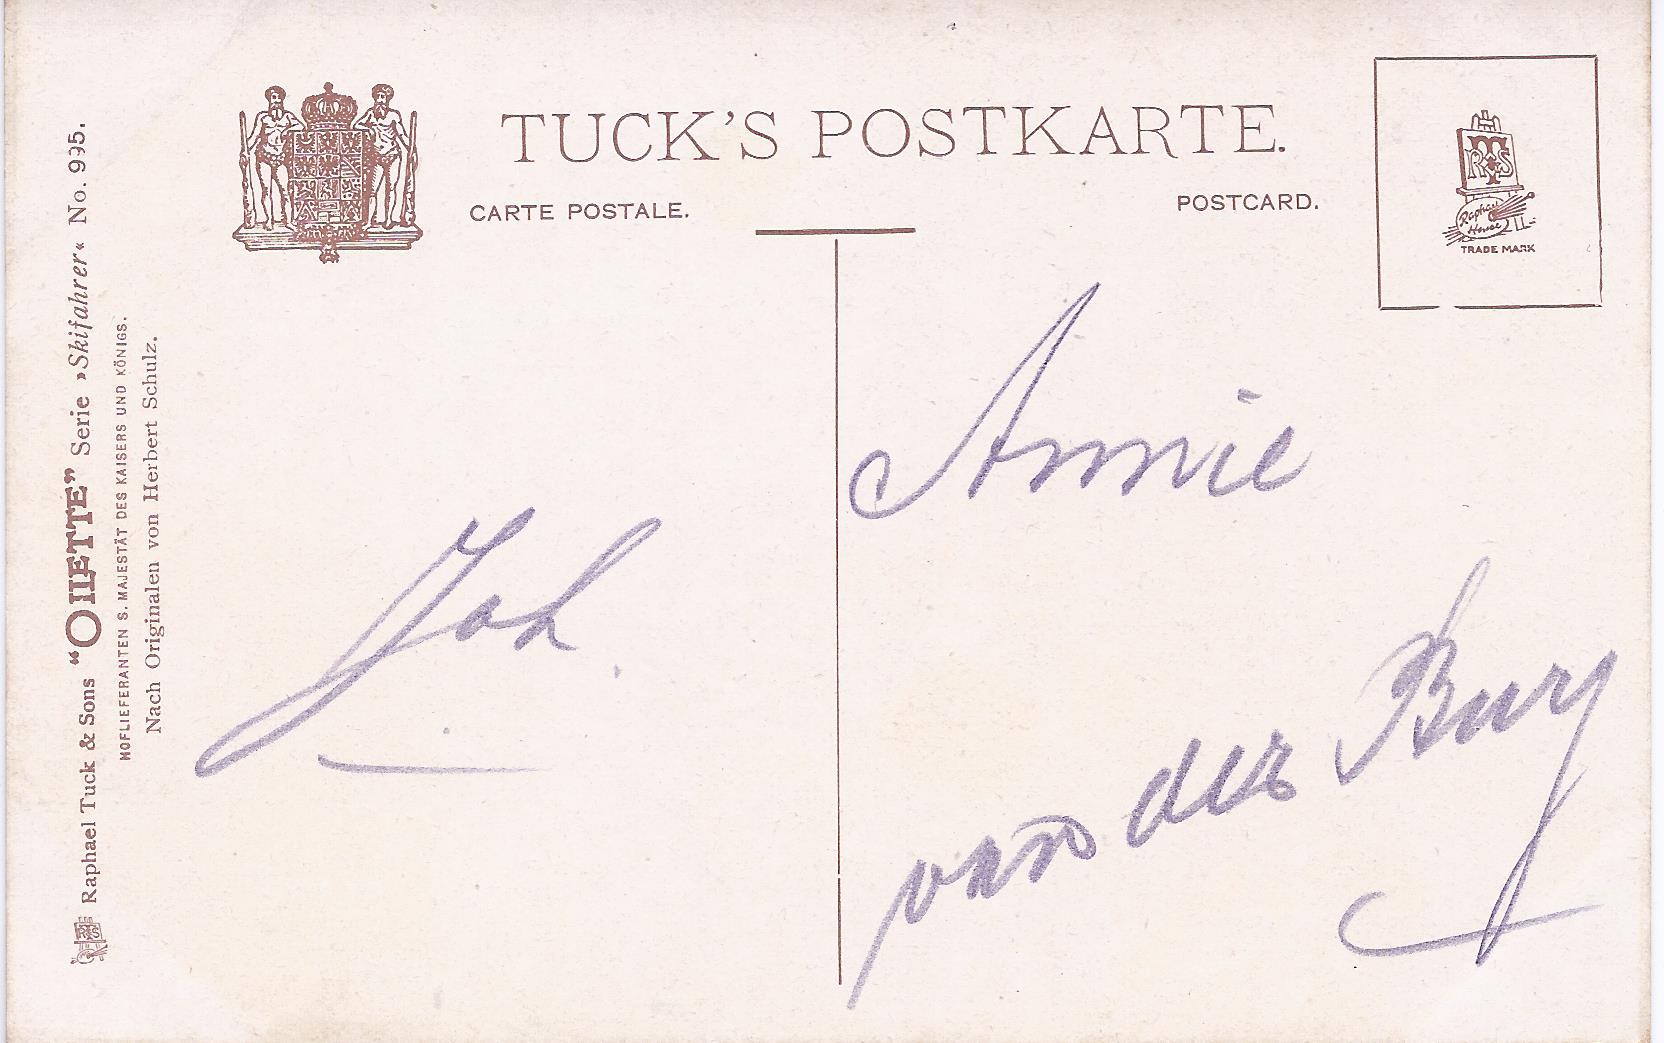 TUCK'S POSTKARTE.
CARTE POSTALE.
POSTCARD.
RTS
Raphael
House
TRADE MARK
Raphael Tuck & Sons “OILETTE” Serie »Skifahrer« No. 995.
HOFLIEFERANTEN S. MAJESTÄT DES KAISERS UND KÖNIGS.
Nach Originalen von Herbert Schulz.
Joh.
Annie
van der Burg